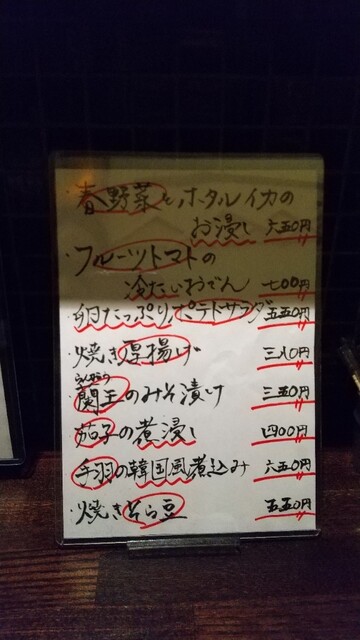 ・春野菜とホタルイカの
お浸し 六五〇円
・フルーツトマトの
冷たいおでん 七〇〇円
・卵たっぷりポテトサラダ 五五〇円
・焼き厚揚げ 三八〇円
・蘭王のみそ漬け 三五〇円
・茄子の煮浸し 四〇〇円
・手羽の韓国風煮込み 六五〇円
・焼きそら豆 五五〇円